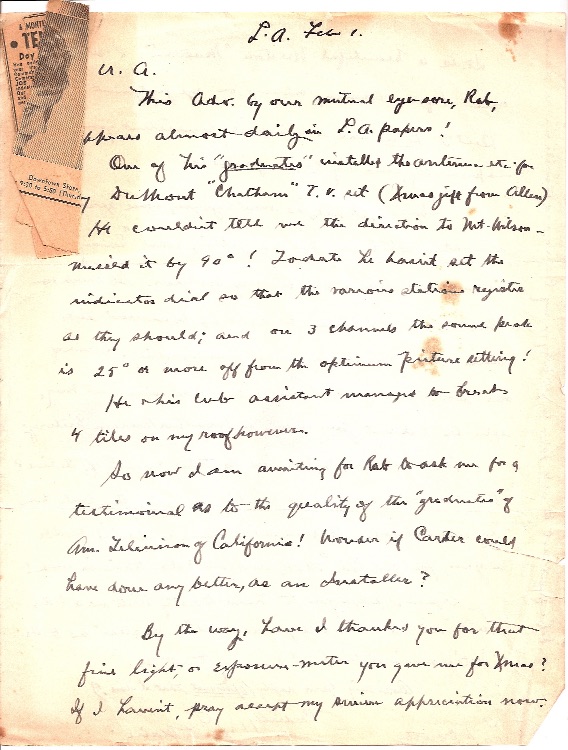 L.A. Feb 1.
A MONTE
TE
Day
Downtown Store
9:30 to 5:30
A.
This Adv. by our mutual eye-sore, Rab,
appears almost daily in L.A. papers!
One of his "graduates" installed the antenna etc. for
DuMont "Chatham" T.V. set (Xmas gift from Allen)
He couldn't tell me the direction to Mt. Wilson -
missed it by 90°! To date he hasn't set the
indicator dial so that the various stations register
as they should; and on 3 channels the sound peak
is 25° or more off from the optimum picture setting!
He & his assistant managed to break
4 tiles on my roof however.
So now I am awaiting for Rab to ask me for a
testimonial as to the quality of the "graduates" of
Am. Television of California! Wonder if Carter could
have done any better, as an Installer?
By the way, have I thanked you for that
fine light, or exposure-meter you gave me for Xmas?
If I havint, pray accept my appreciation now.